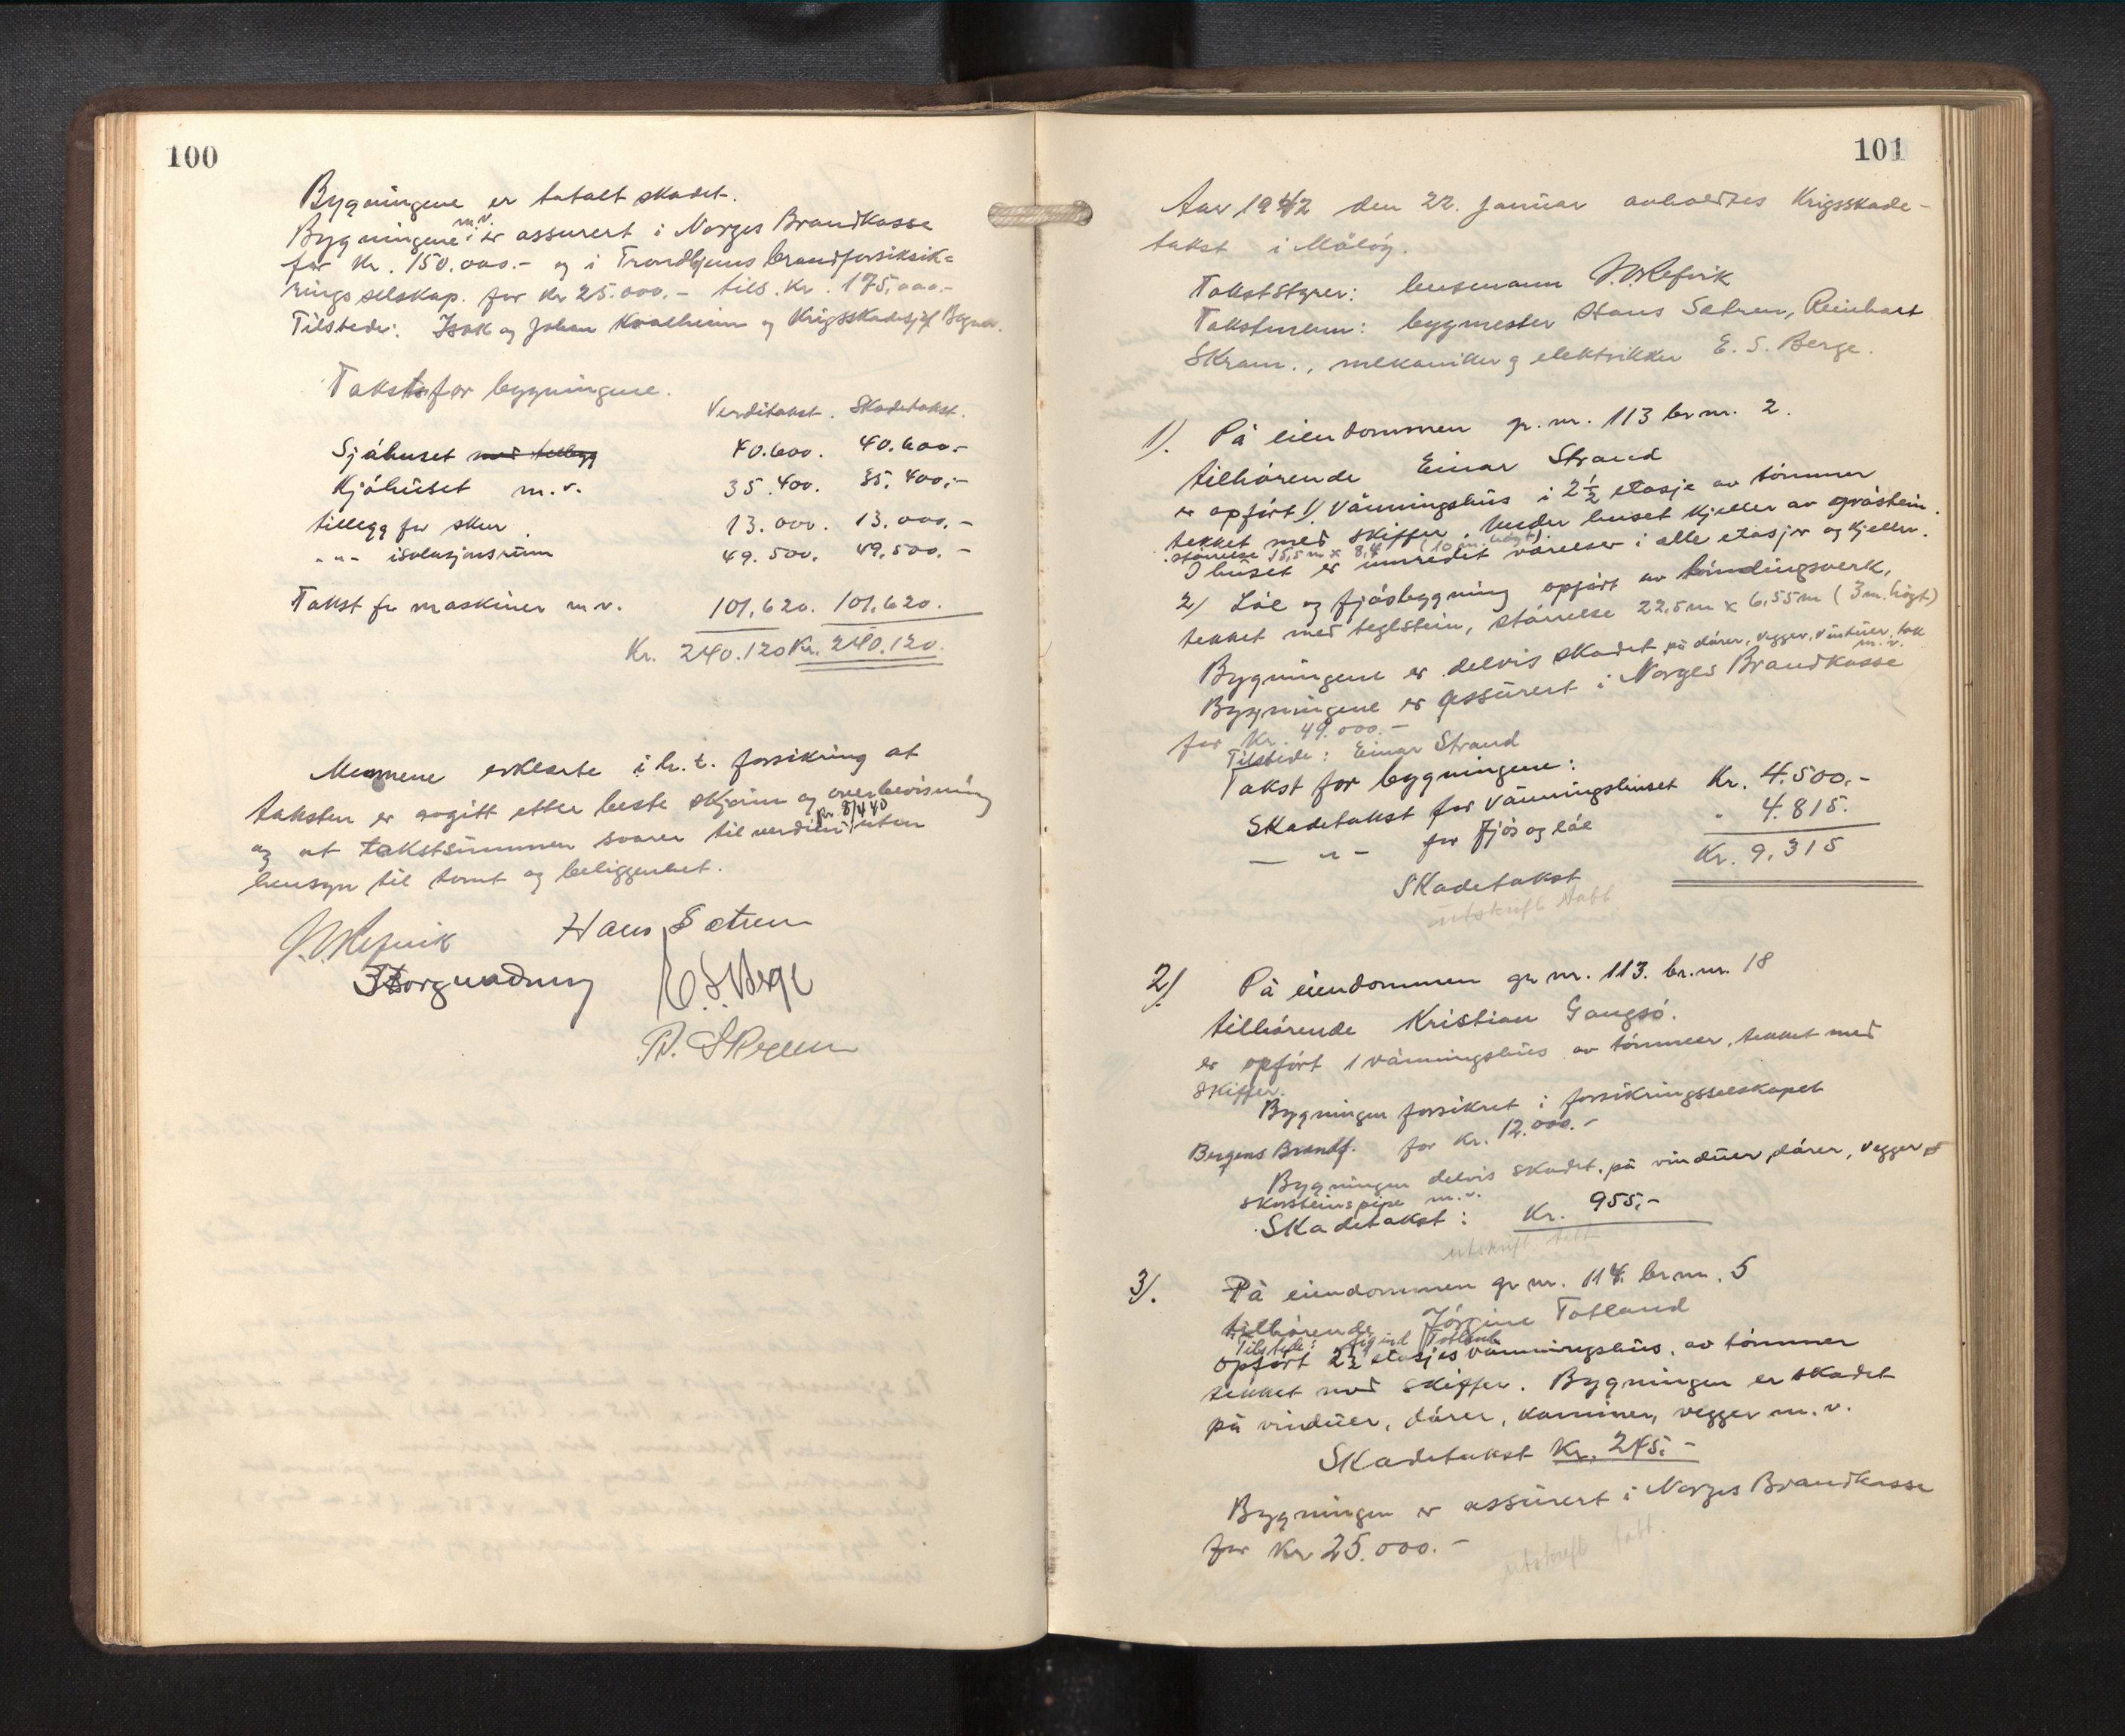 100
Bygningene er totalt skadet.
Bygningene m.v. er assurert i Norges Brandkasse
for kr. 150.000.- og i Trondhjems brandforsiksik=
ringsselskap for kr 25.000.- tils. kr. 175.000.-
Tilstede: Isak og Johan Kvalheim og Krigsskadesjef
Takst for bygningene.
Verditakst. Skadetakst.
Sjøhuset med tillegg 40.600. 40.600.-
Kjøhuset m.v. 35.400. 35.400,-
tillegg for skur 13.000. 13.000.-
-"- isolasjonsrum 49.500. 49.500.-
Takst for maskiner m.v. 101.620. 101.620.
Kr. 240.120 Kr. 240.120.
Mennene erklærte i h.t. forsikring at
taksten er avgitt etter beste skjønn og overbevisning
og at takstsummen svarer til verdien pr. 8/4 40 uten
hensyn til tomt og beliggenhet.
Hans Sætren
E. S. Berge
R. Skram
101
Aar 1942 den 22. januar avholdtes Krigsskade-
takst i Måløy.
Takststyrer: lensmann Refvik
Takstmenn: bygmester Hans Sætren, Reinhart
Skram., mekaniker og elektriker E. S. Berge.
1). På eiendommen gr. nr. 113 br nr. 2.
tilhørende Einar Strand
er opført 1) Våningshus i 2½ etasje av tømmer
tekket med skiffer. Under huset kjeller av gråstein.
størrelse 15,5 m x 8,4 (10 m. høgt).
I huset er innredet værelser i alle etasjer og kjeller.
2) Løe og fjøsbygning opført av bindingsverk,
tekket med teglstein, størrelse 22,5m x 6,55m (3 m. høgt)
Bygningene er delvis skadet på dører, vegger, vinduer, tak
m.v.
Bygningene er assurert i Norges Brandkasse
for kr. 49.000.-
Tilstede: Einar Strand
Takst for bygningene:
Skadetakst for våningshuset Kr. 4.500.-
— " — for fjøs og løe " 4.815.
Skadetakst Kr. 9,315
utskrift tatt
2/ På eiendommen gr nr. 113. br. nr. 18
tilhørende Kristian Gangsö.
er opført 1 våningshus av tømmer, tekket med
skiffer.
Bygningen forsikret i forsikringsselskapet
Bergens Brandf. for Kr. 12.000.-
Bygningen delvis skadet på vinduer, dører, vegger,
skorsteinspipe m.v.
Skadetakst: Kr. 955,-
utskrift tatt
3/. På eiendommen gr nr. 114. br nr. 5
tilhørende Jørgine Totland
Tilstede: Totland
opført 2½ etasjes våningshus, av tømmer
tekket med skiffer. Bygningen er skadet
på vinduer, dører, kaminer, vegger m.v.
Skadetakst Kr. 245.-
Bygningen er assurert i Norges Brandkasse
for Kr 25.000.-
utskrift tatt.